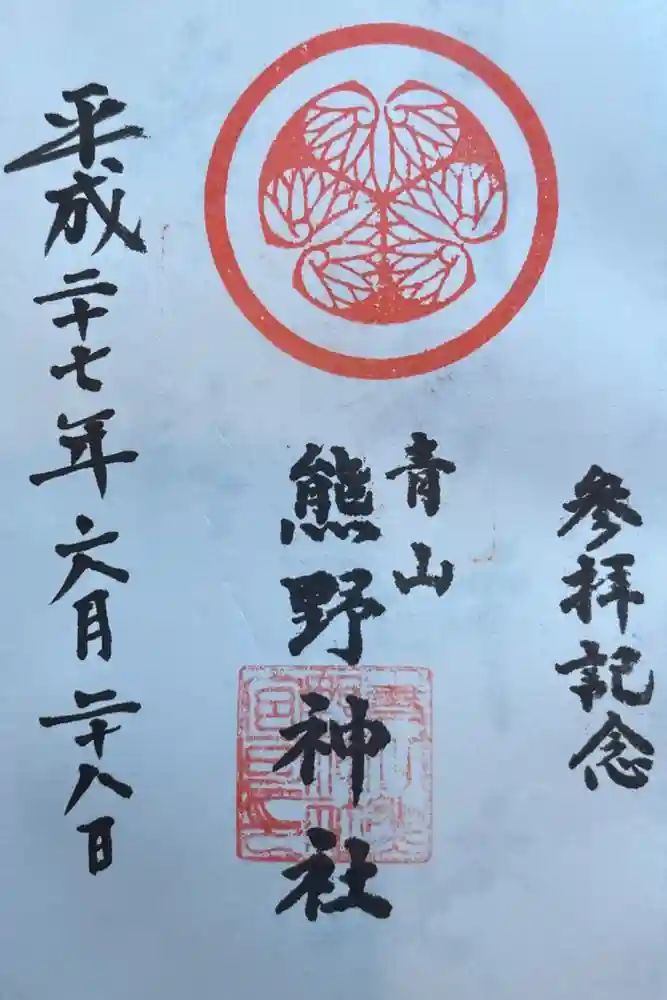 参拝記念
青山
熊野神社
平成二十七年六月二十八日